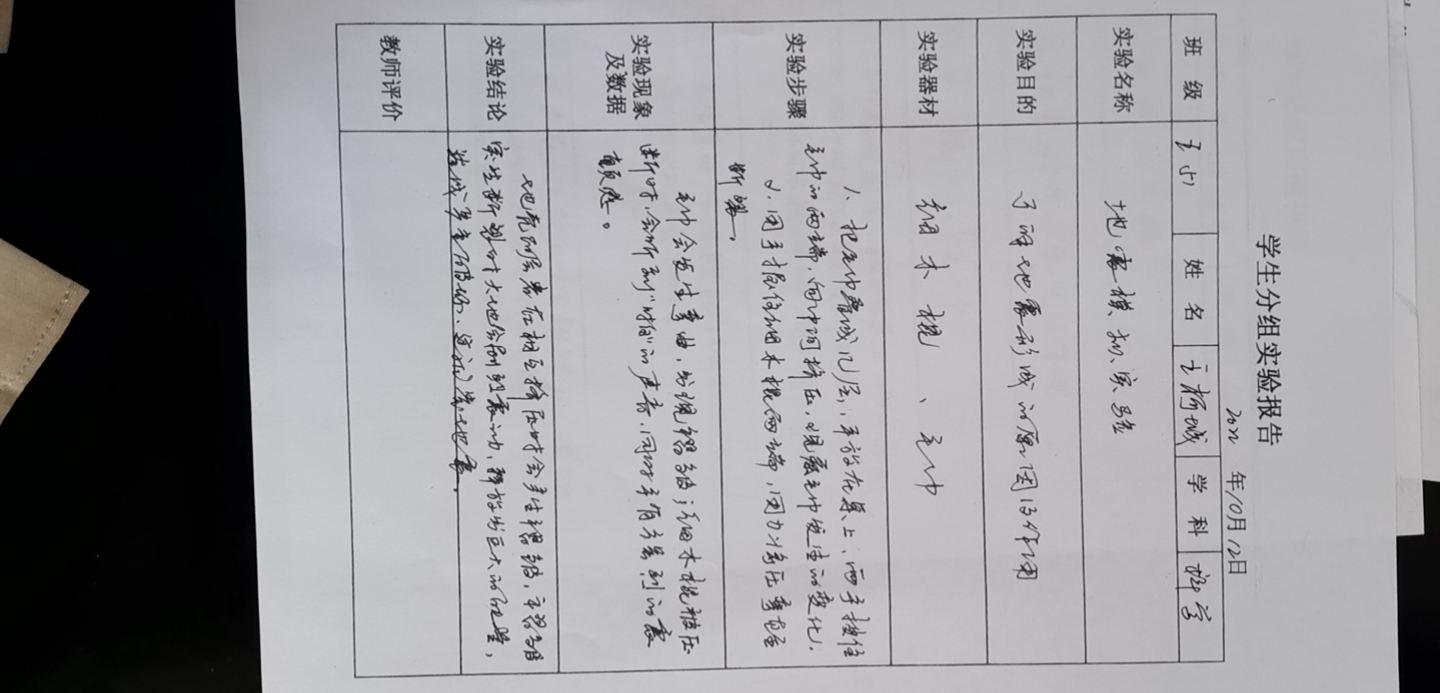 学生分组实验报告
2022年10月12日
班 级 五(5) 姓 名 王杨城 学 科 科学
实验名称 地震模拟实验
实验目的 了解地震形成的原因及作用
实验器材 细木棍、毛巾
实验步骤
1、把毛巾叠成几层,平放在桌上,两手按住
毛巾的两端,向中间挤压,观察毛巾发生的变化。
2、用手握住细木棍两端,用力将压弯直至
断裂。
实验现象
及数据
毛巾会发生弯曲,出现褶皱;细木棍被压
断时,会听到“咔”的声音,同时手有受到的震
颤感。
实验结论
地壳的层岩在相互挤压时会产生褶皱,
突生断裂时大地会剧烈震动,释放出巨大的能量,
造成
教师评价